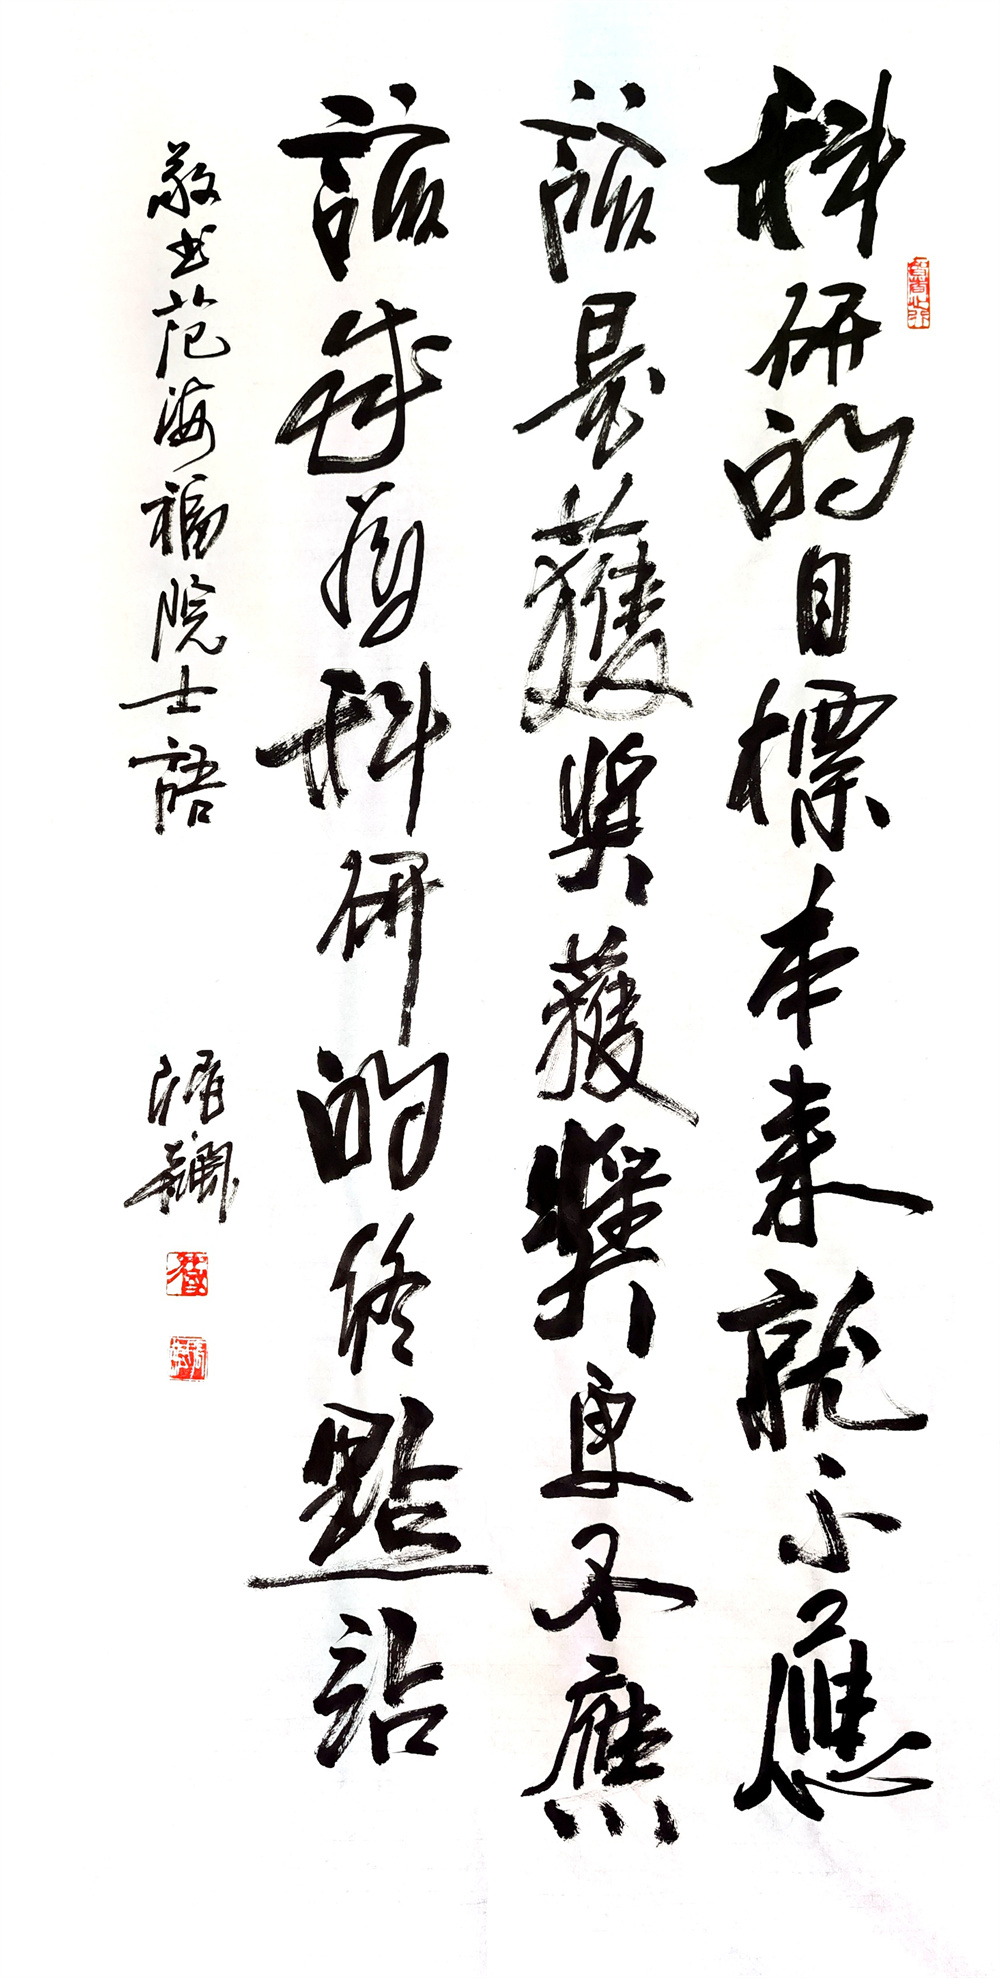 科研的目標本来就不應
該是獲奬獲奬更不應
該成為科研的终點站
敬书范海福院士語